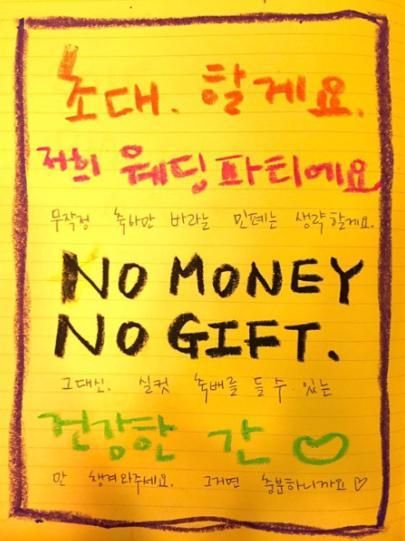 초대. 할게요.
저희 웨딩파티에요
무작정 축하만 바라는 민폐는 생략할게요.
NO MONEY
NO GIFT.
그대신. 실컷 축배를 들 수 있는
건강한 간 ♡
만 챙겨와주세요. 그거면 충분하니까요 ♡